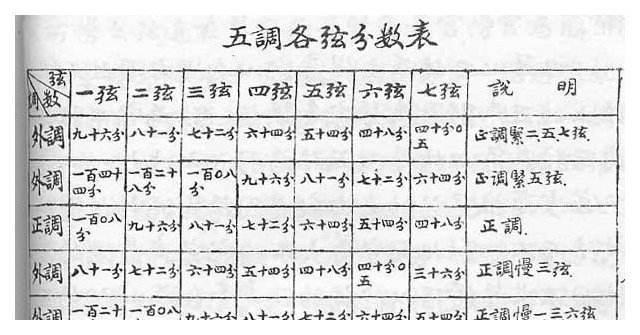 五調各弦分數表
弦 調 數 一弦 二弦 三弦 四弦 五弦 六弦 七弦 說 明
外調 九十六分 八十一分 七十二分 六十四分 五十四分 四十八分 四十分0五 正調緊二五七弦.
外調 一百四十四分 一百二十八分 一百0八分 九十六分 八十一分 七十二分 六十四分 正調緊五弦.
正調 一百0八分 九十六分 八十一分 七十二分 六十四分 五十四分 四十八分 正調.
外調 八十一分 七十二分 六十四分 五十四分 四十八分 四十分0五 三十六分 正調慢三弦.
外調 一百二十 一百0八 九十六分 八十一分 七十二分 六十四分 五十四分 正調慢一三六弦